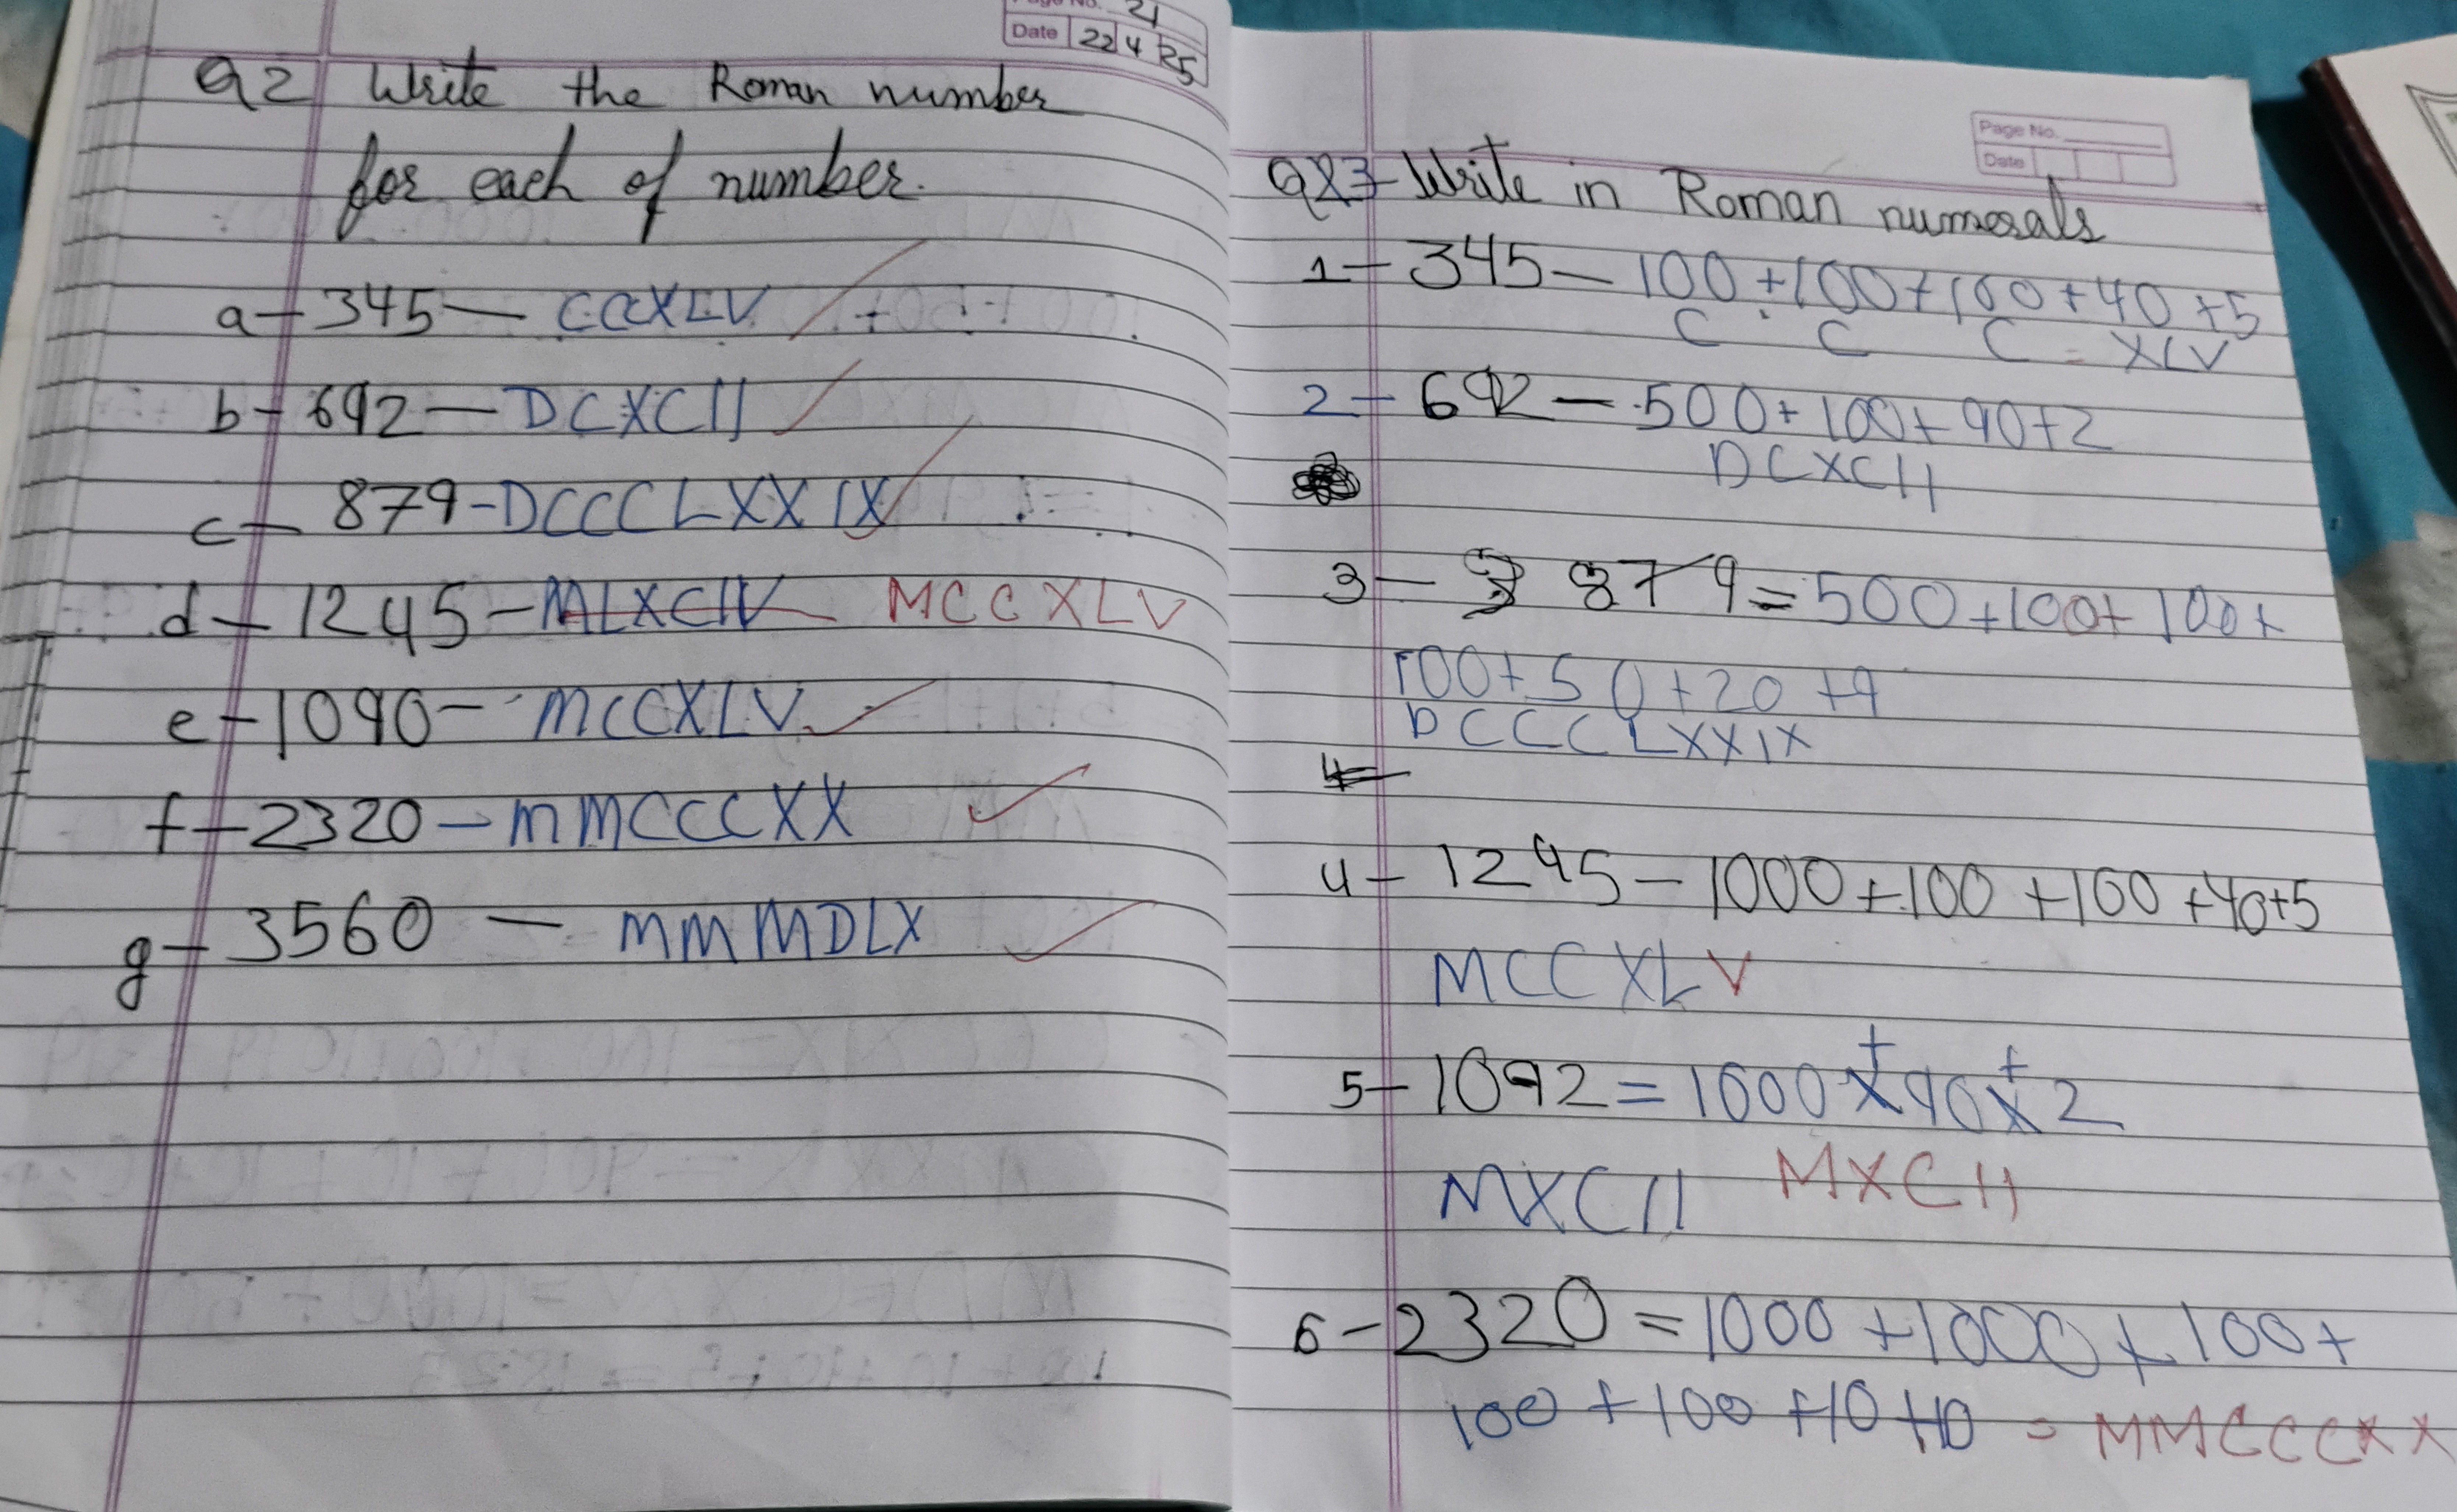 Page No. 21
Date 22 4 25
Q2 Write the Roman number
for each of number.
a - 345 — CCXLV
b - 692 — DCXCII
c — 879 - DCCCLXXIX
d — 1245 - MLXCIV MCCXLV
e - 1090 - MCCXLV
f - 2320 - MMCCCXX
g - 3560 — MMMDLX
Page No.
Date
Q3 - Write in Roman numerals
1 - 345 — 100 + 100 + 100 + 40 + 5
C C C = XLV
2 - 692 — 500 + 100 + 90 + 2
DCXCII
3 — 879 = 500 + 100 + 100 +
100 + 50 + 20 + 9
DCCCLXXIX
4 -
4 - 1245 - 1000 + 100 + 100 + 40 + 5
MCCXLV
5 - 1092 = 1000 + 90 + 2
MXCII MXCII
6 - 2320 = 1000 + 1000 + 100 +
100 + 100 + 10 + 10 = MMCCCXX